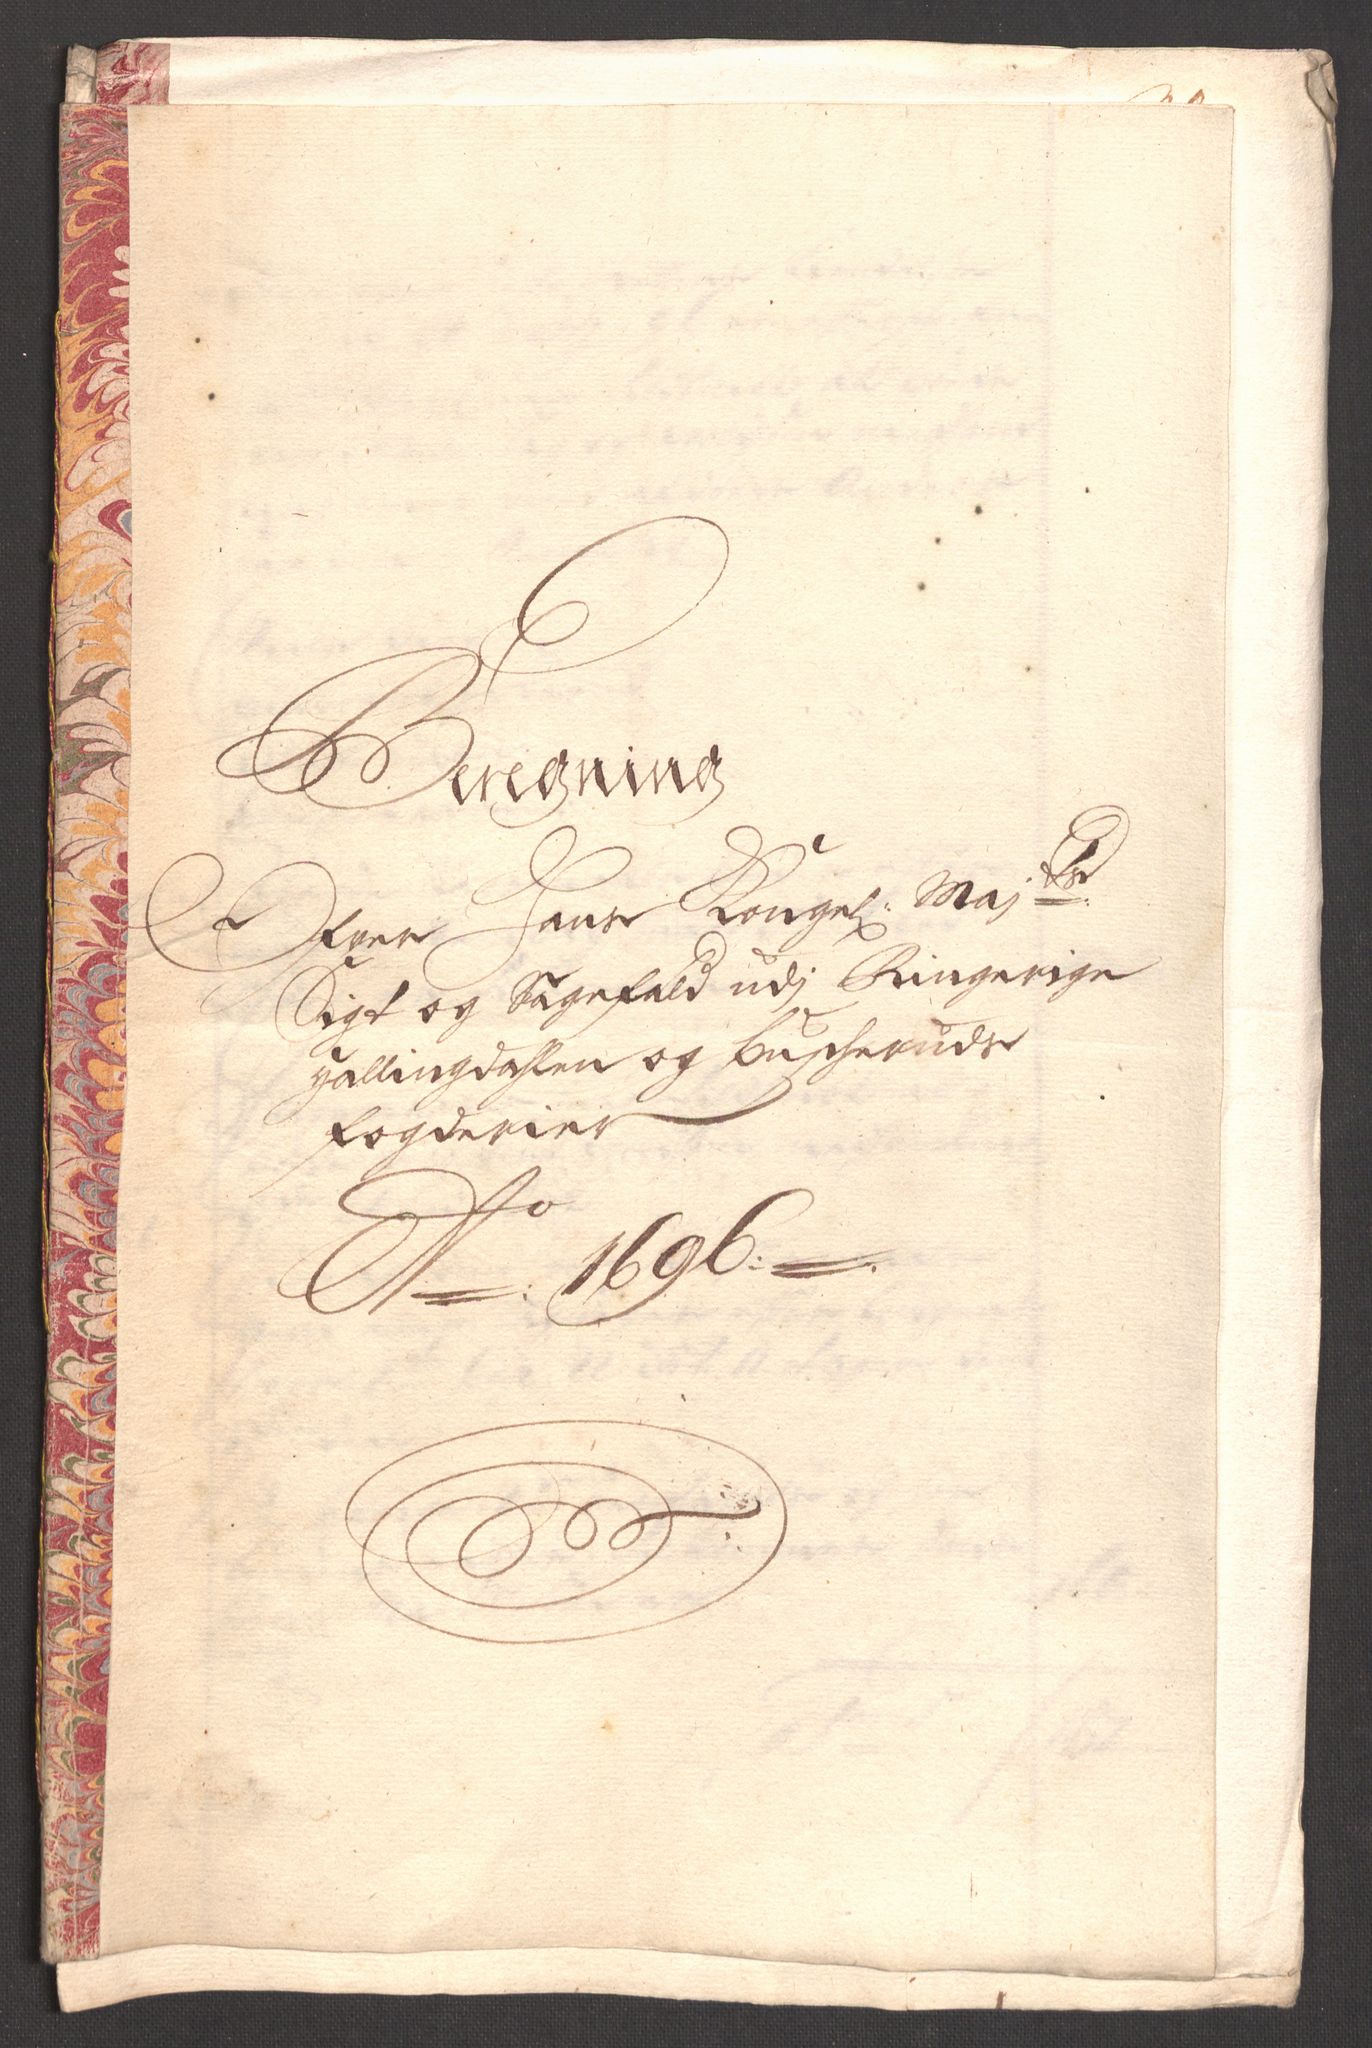 Beregning
Ofver Hans Kongel: Maj:tts
Sigt og Sagefald udj Ringerige
Hallingdahlen og Buscheruds
fogderier
Ao: 1696: